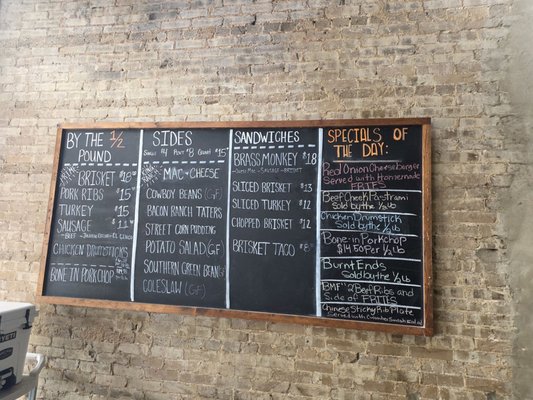 BY THE 1/2
POUND
BRISKET $18
PORK RIBS $15
TURKEY $15
SAUSAGE $11
CHICKEN DRUMSTICKS
BONE IN PORKCHOP
SIDES
SMALL $4 PINT $8
MAC + CHEESE
COWBOY BEANS (GF)
BACON RANCH TATERS
STREET CORN PUDDING
POTATO SALAD (GF)
SOUTHERN GREEN BEAN
COLESLAW (GF)
SANDWICHES
BRASS MONKEY $18
MAC - SAUSAGE - BRISKET
SLICED BRISKET $13
SLICED TURKEY $12
CHOPPED BRISKET $12
BRISKET TACO
SPECIALS OF
THE DAY:
Red Onion Cheeseburger
Served with Homemade
FRIES
Beef Cheek Pastrami
Sold by the 1/2 lb
Chicken Drumstick
Sold by the 1/2 lb
Bone-in Pork Chop
$14.50 Per 1/2 lb
Burnt Ends
Sold by the 1/2 lb
Beef Ribs and
Side of FRIES
Chinese Sticky Rib Plate
YETI